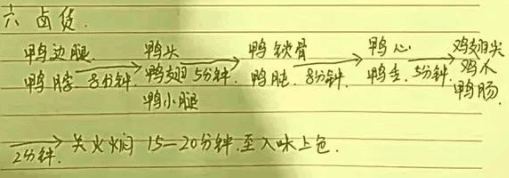 六 卤货.
鸭边腿 鸭头 鸭锁骨 鸭心 鸡翅尖
鸭脖 8分钟. 鸭翅 5分钟. 鸭肫. 8分钟. 鸭舌. 5分钟. 鸡爪
鸭小腿 鸭肠.
2分钟. 关火焖 15—20分钟.至入味上色.